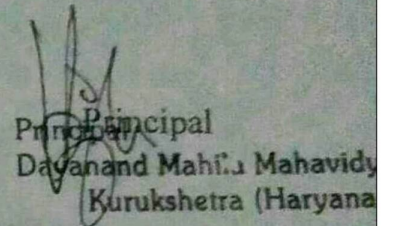 Principal
Principal
Dayanand Mahila Mahavidy
Kurukshetra (Haryana